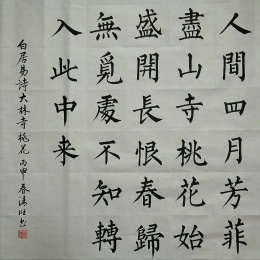 人間四月芳菲
盡山寺桃花始
盛開長恨春歸
無覓處不知轉
入此中来
白居易詩大林寺桃花 丙申春